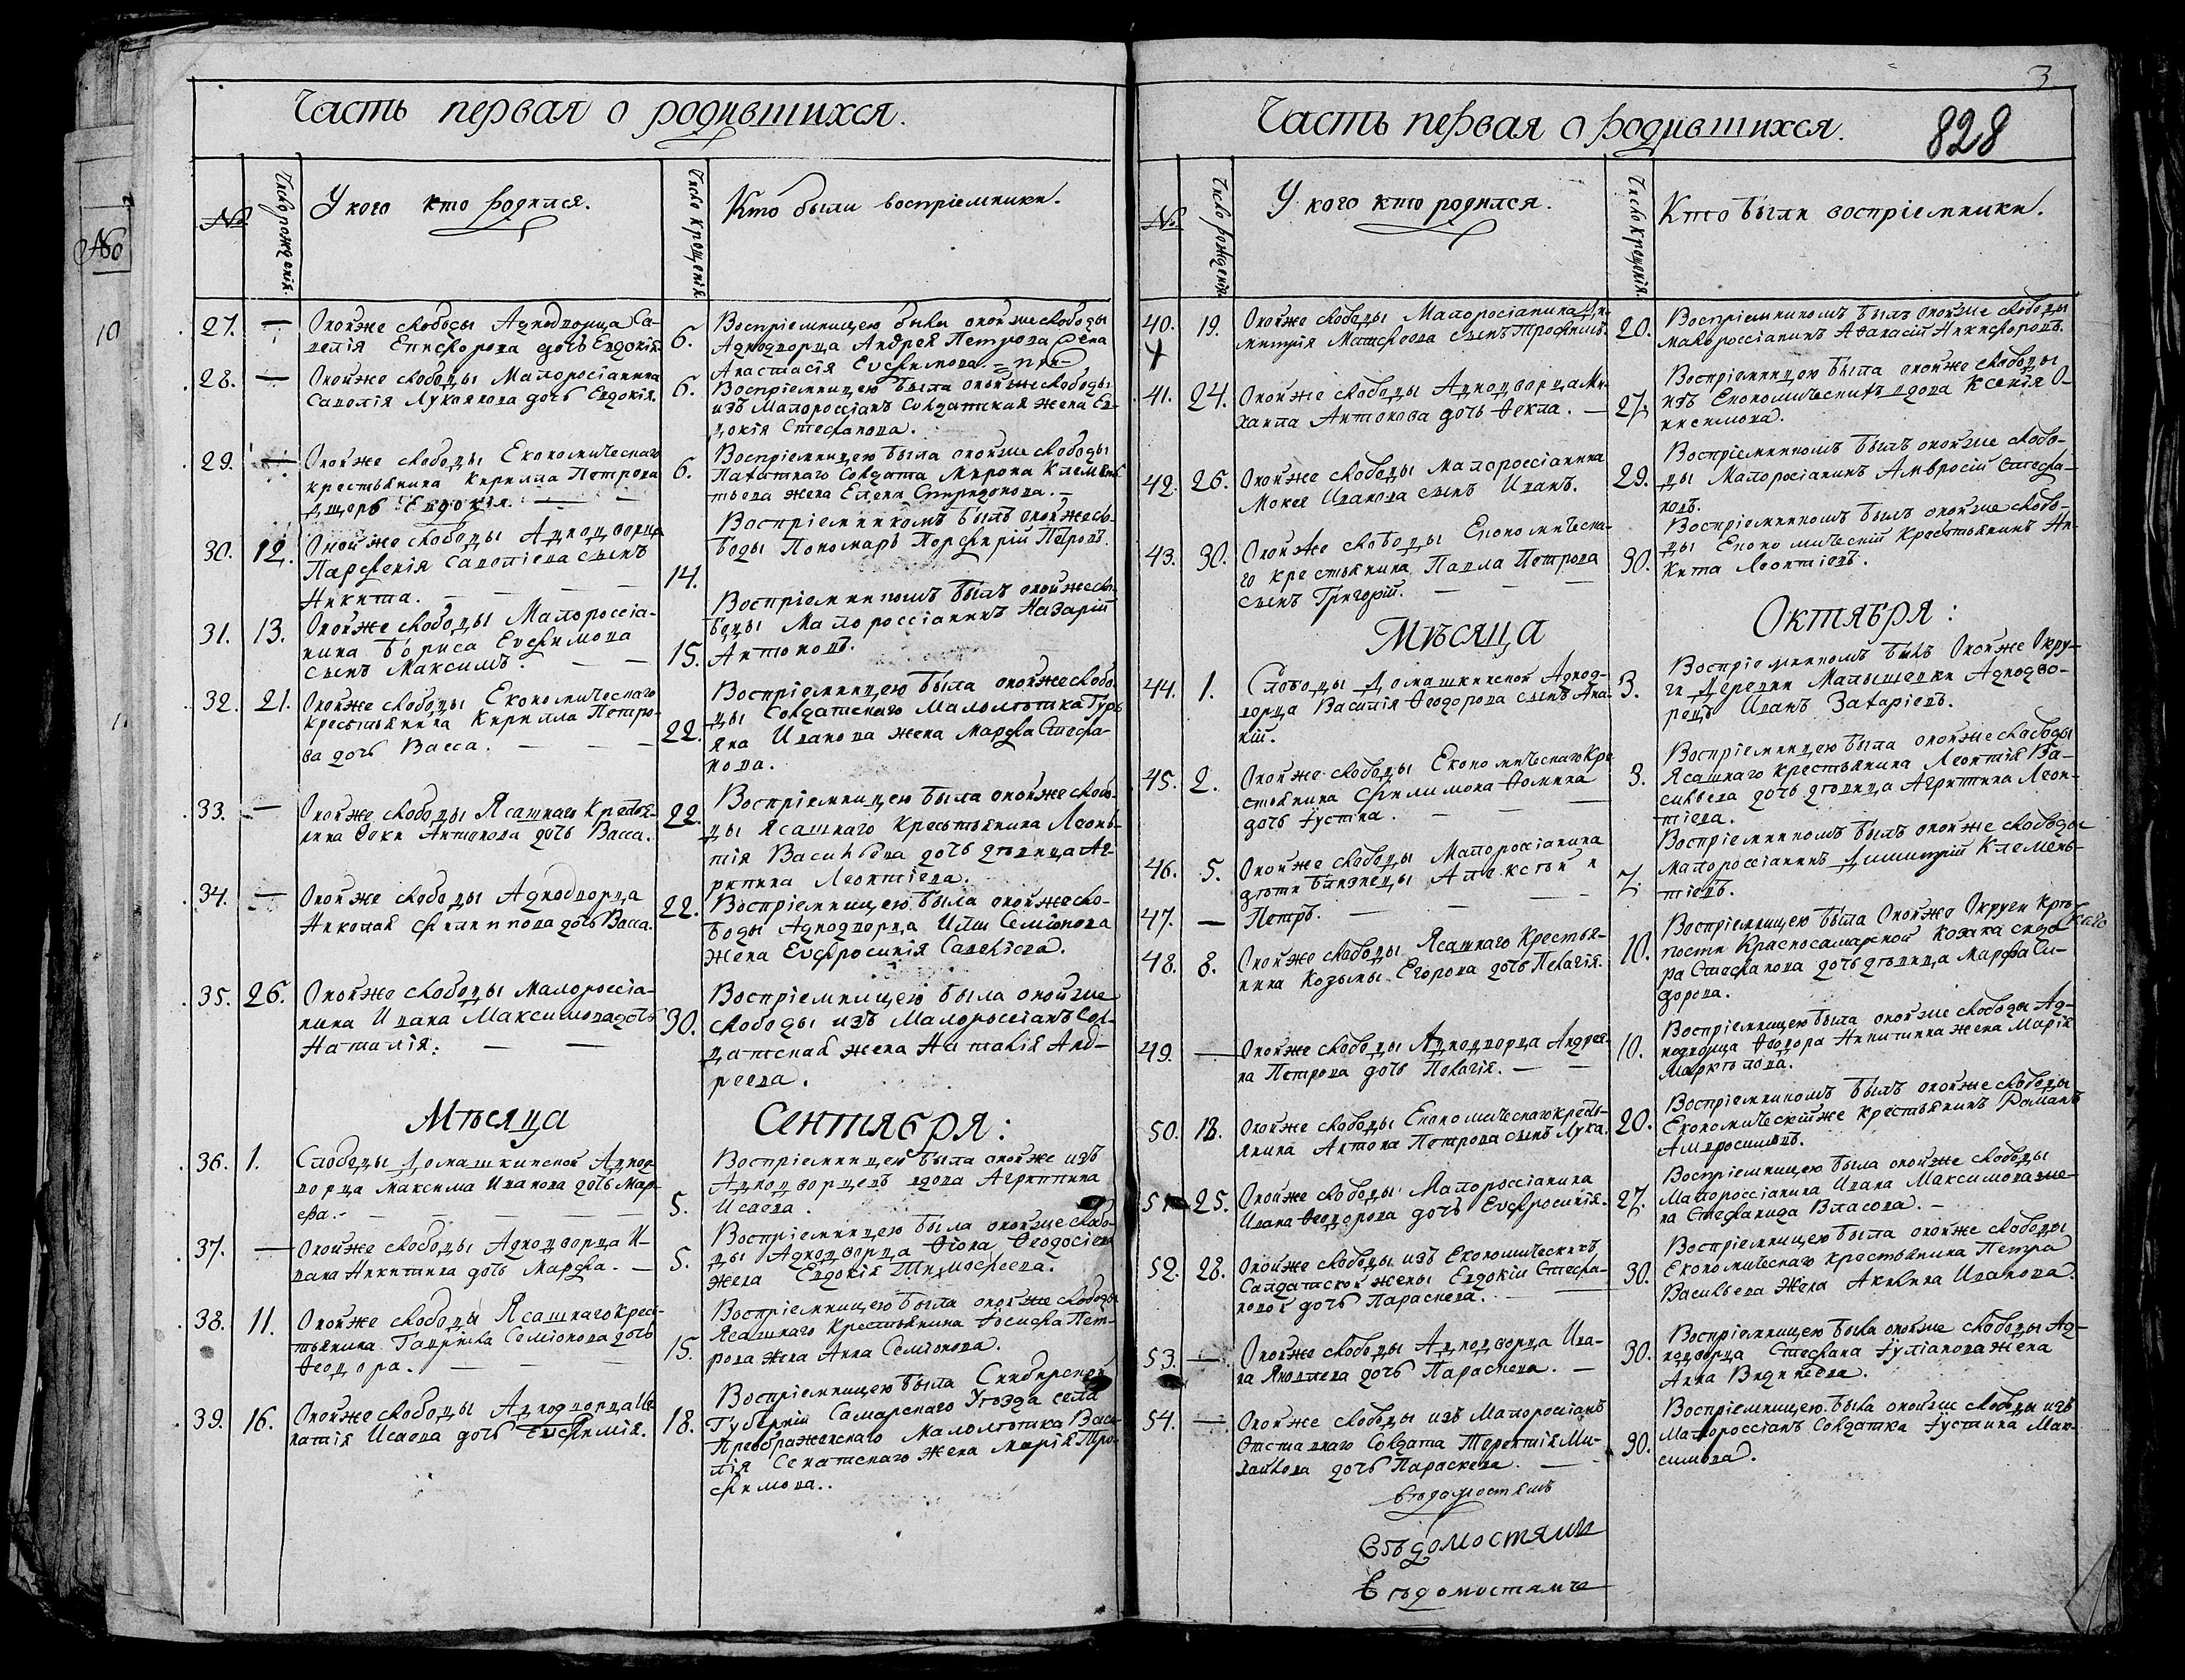 Часть первая о родившихся.
№
Число рождения.
У кого кто родился.
Число крещения.
Кто были воспріемники.
27. —
Оной же слободы Аднодворца Са-
велія Епифорова дочь Евдокія.
6.
Воспріемницею была оной же слободы
Аднодворца Андрея Петрова жена
Анастасія Евфимова.
28. —
Оной же слободы Малоросіанина
Савелія Лукоянова дочь Евдокія.
6.
Воспріемницею была оной же слободы
изъ Малороссіанъ Солдатская жена Ев-
докія Стефанова.
29. —
Оной же слободы Економическаго
крестьянина Кирилла Петрова
дщерь Евдокія.
6.
Воспріемницею была оной же слободы
Пахатнаго Солдата Мирона Клемен-
тьева жена Елена Спиридонова.
30. 12.
Оной же слободы Аднодворца
Парфенія Савеліева сынъ
Никита.
14.
Воспріемникомъ былъ оной же сло-
боды Пономарь Порфирій Петровъ.
31. 13.
Оной же слободы Малороссіа-
нина Бориса Евфимова
сынъ Максимъ.
15.
Воспріемникомъ былъ оной же сло-
боды Малороссіанинъ Назарій
Антоновъ.
32. 21.
Оной же слободы Економическаго
крестьянина Кирилла Петро-
ва дочь Васса.
22.
Воспріемницею была оной же слобо-
ды Солдатскаго Малолѣтка Гурь-
яна Иванова жена Марфа Стефа-
нова.
33. —
Оной же слободы Ясашнаго Крестья-
нина Фоки Антонова дочь Васса.
22.
Воспріемницею была оной же слобо-
ды Ясашнаго Крестьянина Леонь-
тія Васильева дочь дѣвица Аг-
рипина Леонтіева.
34. —
Оной же слободы Аднодворца
Николая Филиппова дочь Васса.
22.
Воспріемницею была оной же сло-
боды Аднодворца Иліи Семіонова
жена Евфросинія Савельева.
35. 26.
Оной же слободы Малороссіа-
нина Ивана Максимова дочь
Наталія.
30.
Воспріемницею была оной же
слободы изъ Малороссіанъ Сол-
датская жена Наталія Анд-
реева.
Мѣсяца Сентября:
36. 1.
Слободы Домашкинской Аднод-
ворца Максима Иванова дочь Мар-
фа.
5.
Воспріемницею была оной же изъ
Аднодворцевъ вдова Агрипина
Исаева.
37. —
Оной же слободы Аднодворца И-
вана Никитина дочь Марфа.
5.
Воспріемницею была оной же слобо-
ды Аднодворца Фіона Феодосіева
жена Евдокія Тимофеева.
38. 11.
Оной же слободы Ясашнаго Крес-
тьянина Гавріила Семіонова дочь
Феодора.
15.
Воспріемницею была оной же слободы
Ясашнаго Крестьянина Іосифа Пет-
рова жена Анна Семіонова.
39. 16.
Оной же слободы Аднодворца Иг-
натія Исаева дочь Евфимія.
18.
Воспріемницею была Синбирской
Губерніи Самарскаго Уѣзда села
Преображенскаго Малолѣтка Васи-
лія Сенатскаго жена Марія Тро-
фимова.
3
828
Часть первая о родившихся.
№
Число рождения.
У кого кто родился.
Число крещения.
Кто были воспріемники.
40. 19.
Оной же слободы Малоросіанина Ди-
митрія Матфеева сынъ Трофимъ.
20.
Воспріемникомъ былъ оной же слободы
Малороссіанинъ Афанасій Никифоровъ.
41. 24.
Оной же слободы Аднодворца Ми-
хаила Антонова дочь Фекла.
27.
Воспріемницею была оной же слободы
изъ Економическихъ вдова Ксенія О-
нисимова.
42. 26.
Оной же слободы Малороссіанина
Мокея Иванова сынъ Иванъ.
29.
Воспріемникомъ былъ оной же слобо-
ды Малоросіанинъ Амвросій Стефа-
новъ.
43. 30.
Оной же слободы Економическа-
го крестьянина Павла Петрова
сынъ Григорій.
30.
Воспріемникомъ былъ оной же слобо-
ды Економическій Крестьянинъ Ни-
кита Леонтіевъ.
Мѣсяца Октября:
44. 1.
Слободы Домашкинской Аднод-
ворца Василія Феодорова сынъ Ана-
ній.
3.
Воспріемникомъ былъ Оной же Окру-
ги Деревни Малышевки Аднодво-
рецъ Иванъ Захаріевъ.
45. 2.
Оной же слободы Економическаго Кре-
стьянина Филимона Фомина
дочь Іустина.
3.
Воспріемницею была оной же слободы
Ясашнаго крестьянина Леонтія Ва-
сильева дочь дѣвица Агрипина Леон-
тіева.
46. 5.
Оной же слободы Малороссіанина
дѣти близнецы Алексѣй и
7.
Воспріемникомъ былъ оной же слободы
Малороссіанинъ Димитрій Клемень-
тіевъ.
47. —
Петръ.
48. 8.
Оной же слободы Ясашнаго Крестья-
нина Козьмы Егорова дочь Пелагія.
10.
Воспріемницею была Оной же Округи Крѣ-
пости Красносамарской Козака Сидо-
ра Стефанова дочь дѣвица Марфа Си-
дорова.
49. —
Оной же слободы Аднодворца Андрея-
на Петрова дочь Пелагія.
10.
Воспріемницею была оной же слободы Ад-
нодворца Феодора Никитина жена Марія
Маркѣлова.
50. 18.
Оной же слободы Економическаго кресть-
янина Антона Петрова сынъ Лука.
20.
Воспріемникомъ былъ оной же слободы
Економическій же крестьянинъ Романъ
Амвросимовъ.
51. 25.
Оной же слободы Малороссіанина
Ивана Феодорова дочь Евфросинія.
27.
Воспріемницею была оной же слободы
Малороссіанина Ивана Максимова же-
на Стефанида Власова.
52. 28.
Оной же слободы изъ Економическихъ
Салдатской жены Евдокіи Стефа-
новой дочь Параскева.
30.
Воспріемницею была оной же слободы
Економическаго крестьянина Петра
Васильева Жена Акилина Иванова.
53. —
Оной же слободы Аднодворца Ива-
на Яковлева дочь Параскева.
30.
Воспріемницею была оной же слободы Ад-
нодворца Стефана Іуліанова жена
Анна Видинеева.
54. —
Оной же слободы изъ Малороссіанъ
Отставнаго Солдата Терентія Ми-
хайлова дочь Параскева.
30.
Воспріемницею была оной же слободы изъ
Малороссіанъ Солдатка Іустина Мак-
симова.
вѣдомостямъ
Вѣдомостями